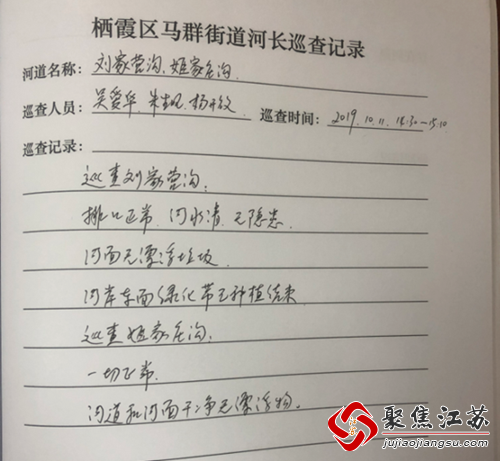 栖霞区马群街道河长巡查记录
河道名称: 刘家营沟、姬家庄沟
巡查人员: 吴爱华、朱 、杨
巡查时间: 2019.10.11. 14:30—15:10
巡查记录:
巡查刘家营沟.
排口正常、河水清、无隐患.
河面无漂浮垃圾.
河岸东面绿化带已种植结束.
巡查姬家庄沟.
一切正常.
河道和河面干净无漂浮物.
聚焦江苏
jujiaojiangsu.com